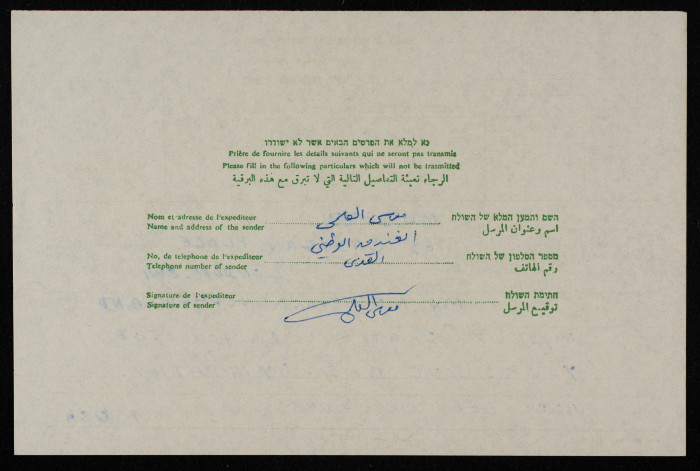 נא למלא את הפרטים הבאים אשר לא ישודרו
Prière de fournire les details suivants qui ne seront pas transmis
Please fill in the following particulars which will not be trasmitted
الرجاء تعبئة التفاصيل التالية التي لا تبرق مع هذه البرقية
Nom et adresse de l'expediteur موسى العلمي השם והמען המלא של השולח
Name and address of the sender الفندق الوطني اسم وعنوان المرسل
No, de telephone de l'expediteur القدس מספר הטלפון של השולח
Telephone number of sender رقم الهاتف
Signature de l'expediteur חתימת השולח
Signature of sender موسى العلمي توقيع المرسل